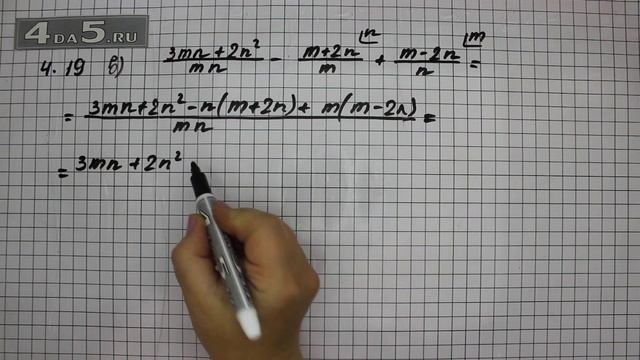 4DA5.RU
4.19 в) (3mn+2n²)/(mn) - (m+2n)/m ⌊n + (m-2n)/n ⌊m =
= (3mn+2n²-n(m+2n)+m(m-2n))/(mn) =
= 3mn+2n²